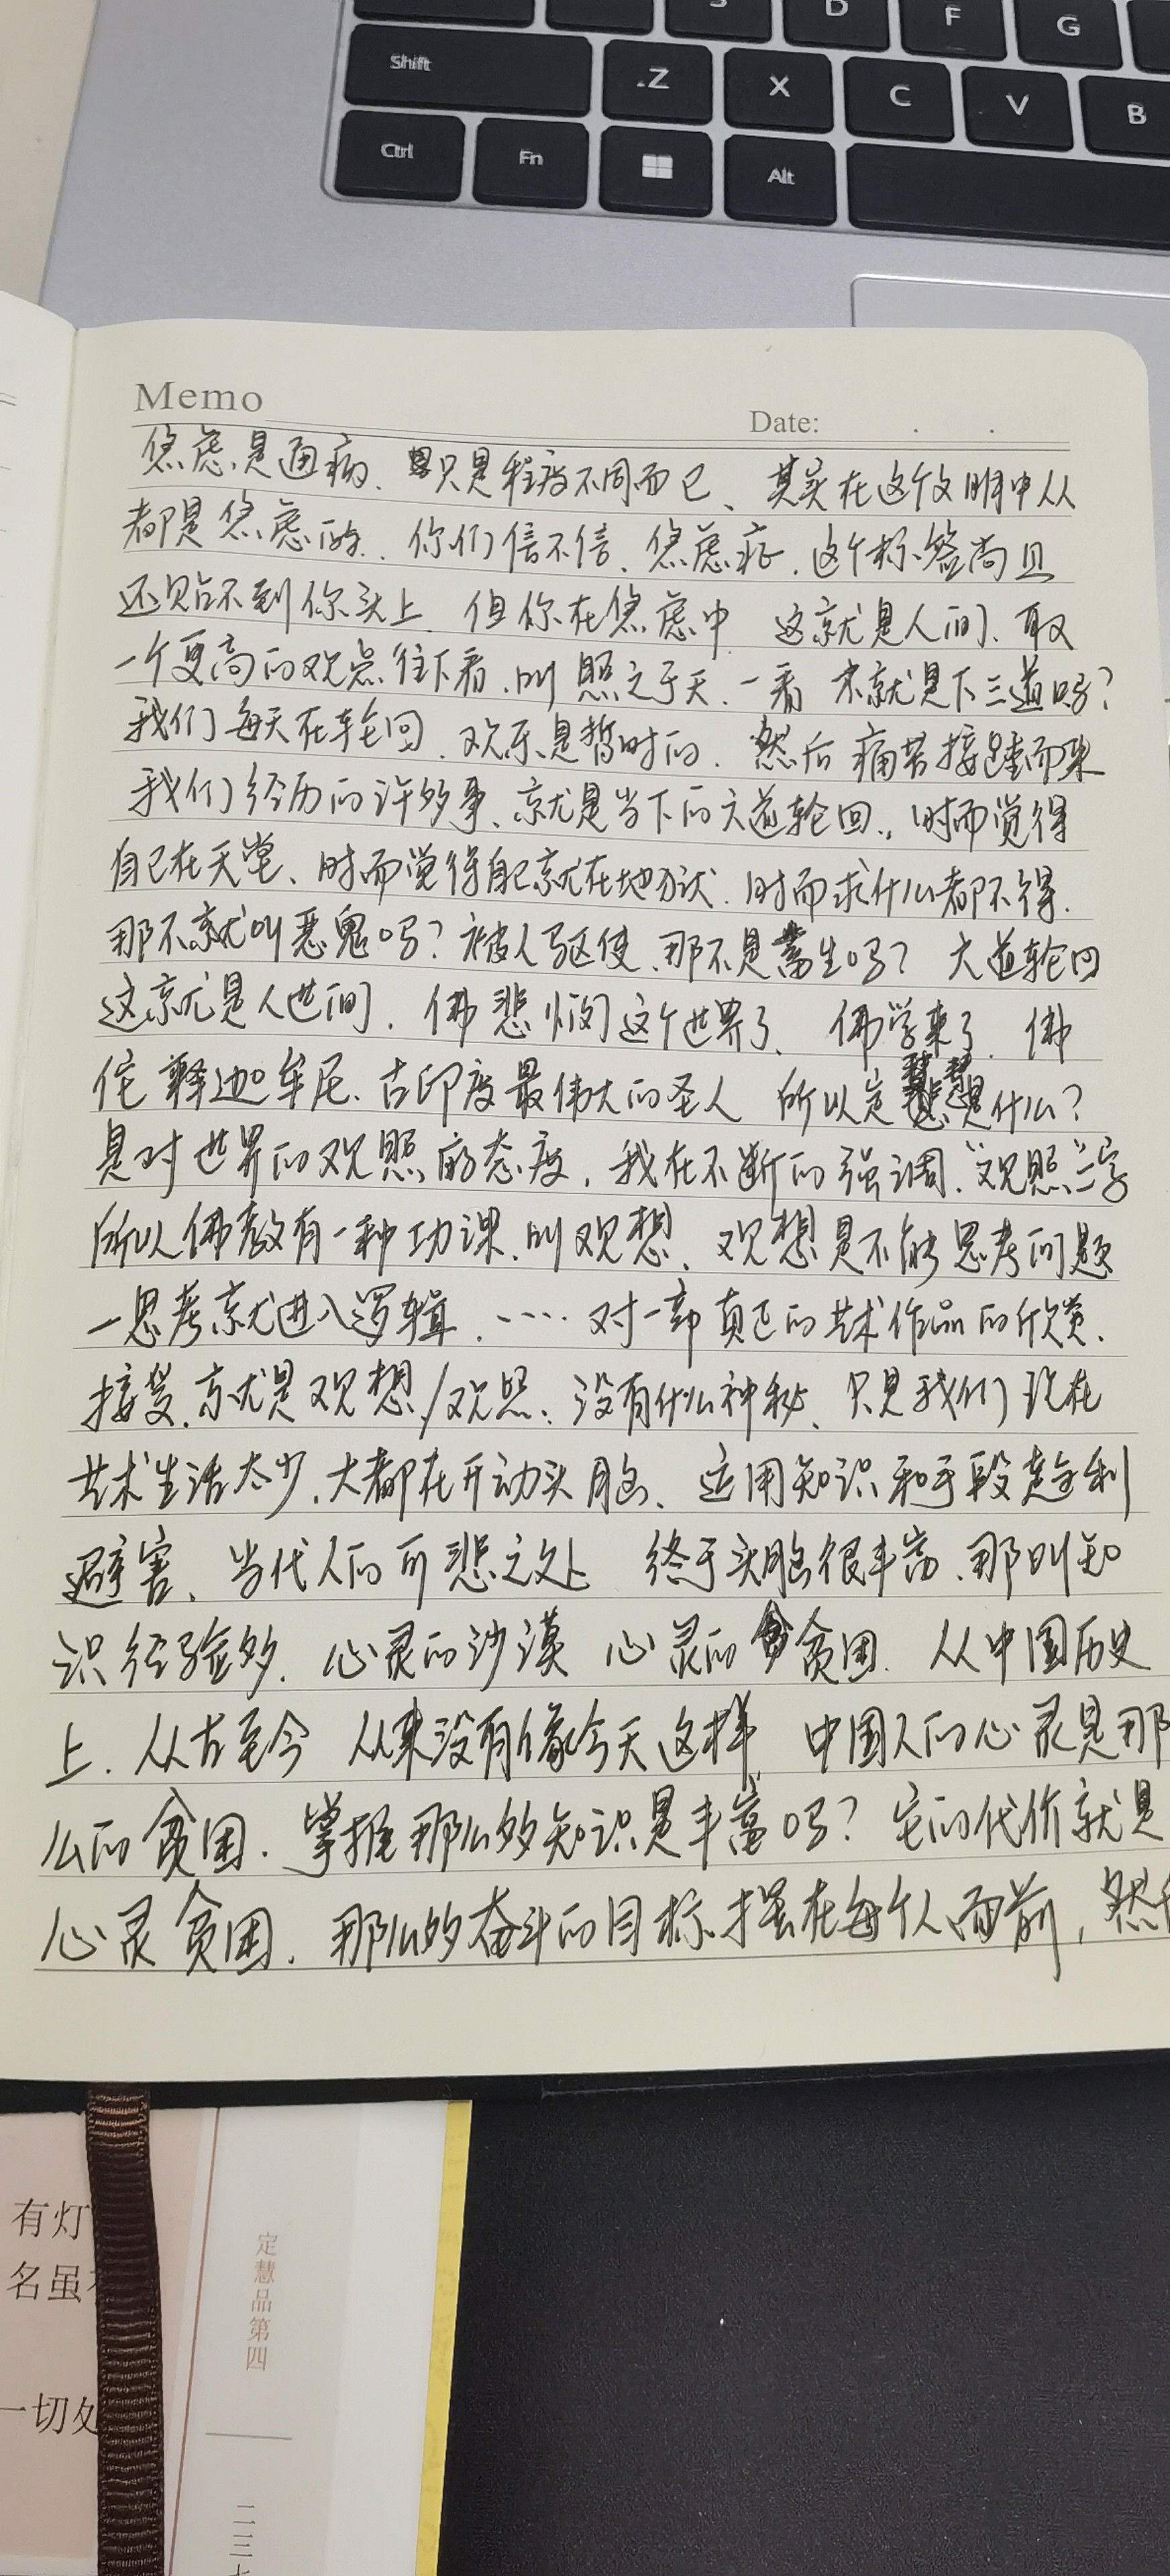 S D F G
Shift Z X C V B
Ctrl Fn Alt
Memo
Date: . .
焦虑是通病、只是程度不同而已、其实在这个文明中人人
都是焦虑的. 你们信不信、焦虑症、这个标签尚且
还贴不到你头上, 但你在焦虑中, 这就是人间、取
一个更高的观点往下看, 叫照之于天. 一看 不就是下三道吗?
我们每天在轮回, 欢乐是暂时的, 然后痛苦接踵而来
我们经历的许多事、就是当下的六道轮回., 时而觉得
自己在天堂、时而觉得自己就在地狱. 时而求什么都不得.
那不就叫恶鬼吗? 被人驱使、那不是畜生吗? 六道轮回
这就是人世间. 佛悲悯这个世界了、佛学来了. 佛
陀释迦牟尼、古印度最伟大的圣人 所以定慧是什么?
是对世界的观照的态度, 我在不断的强调, “观照”二字
所以佛教有一种功课, 叫观想、观想是不能思考问题
一思考就进入逻辑. ···· 对一部真正的艺术作品的欣赏、
接受, 就是观想/观照、没有什么神秘、只是我们现在
艺术生活太少, 大都在开动头脑、运用知识和手段趋利
避害、当代人的可悲之处 终于头脑很丰富、那叫知
识经验多. 心灵的沙漠 心灵的贫困. 从中国历史
上. 从古至今 从来没有像今天这样, 中国人的心灵是那
么的贫困. 掌握那么多知识是丰富吗? 它的代价就是
心灵贫困. 那么多奋斗的目标摆在每个人面前, 然
有灯
名虽
一切处
定慧品第四
二三七